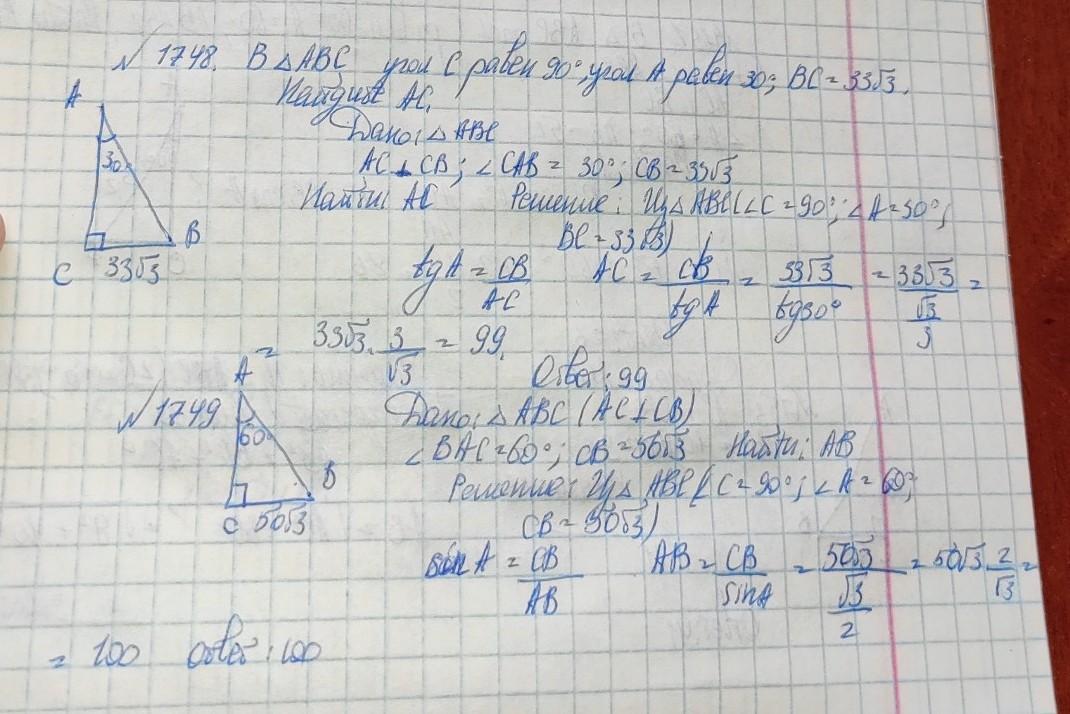 № 1748. В △ABC угол C равен 90°, угол A равен 30°, BC = 33√3.
Найдите AC.
A
Дано: △ABC
30°
AC ⊥ CB; ∠CAB = 30°; CB = 33√3
Найти: AC Решение: Из △ABC (∠C = 90°; ∠A = 30°;
B
BC = 33√3)
C 33√3
tg A = CB/AC AC = CB/tg A = 33√3/tg30° = 33√3/(√3/3) =
= 33√3 · 3/√3 = 99.
Ответ: 99
A
№ 1749 Дано: △ABC (AC ⊥ CB)
60°
∠BAC = 60°; CB = 50√3 Найти: AB
B
Решение: Из △ABC (∠C = 90°; ∠A = 60°;
C 50√3
CB = 50√3)
sin A = CB/AB AB = CB/sin A = 50√3/(√3/2) = 50√3 2/√3 =
= 100 Ответ: 100